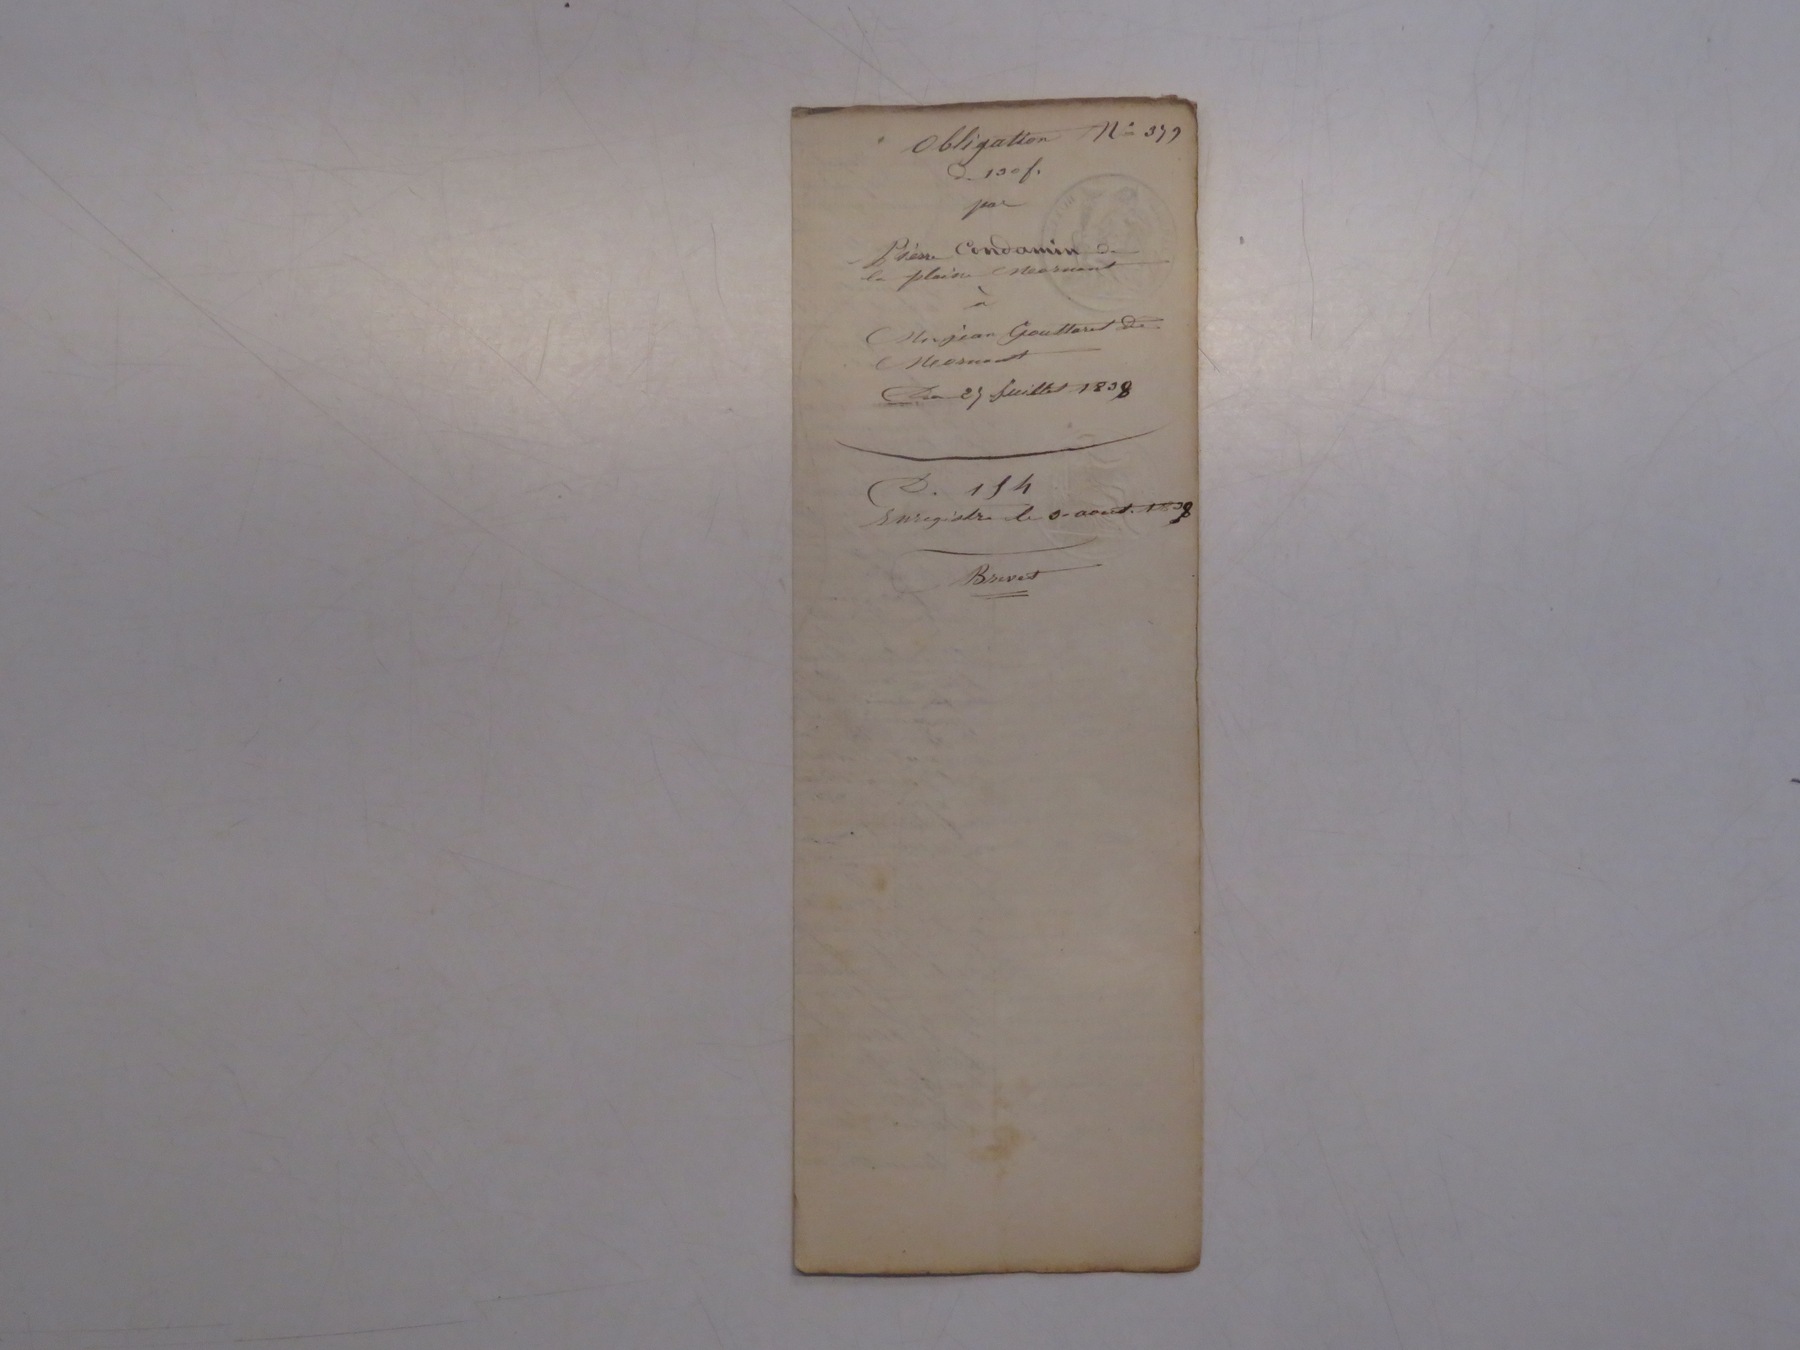 Obligation N° 379
de 130 f.
par
Pierre Condamin de
la plaine Mornant
à
jean Gouttaret de
Mornant
Du 27 juillet 1838
D. 154
Enregistré le 3 aout 1838
Brevet